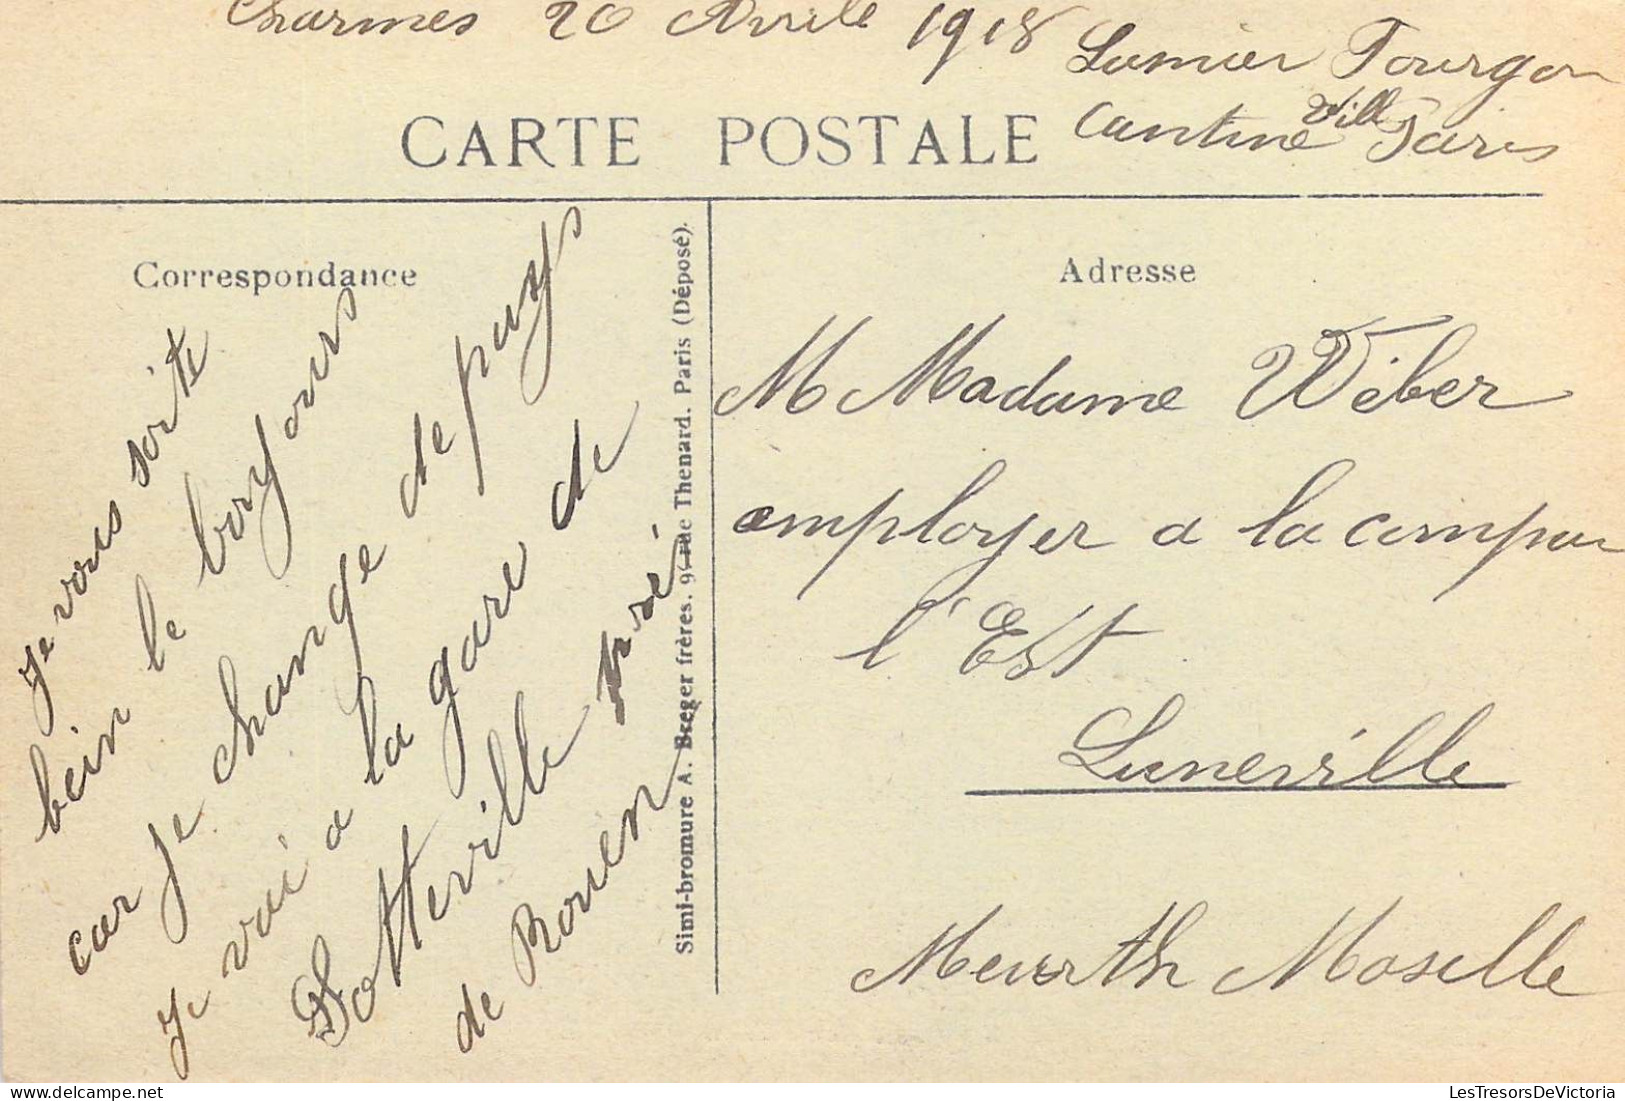 Charmes 20 Avrile 1918
Lumier Fourgon
Cantine Vill Paris
CARTE POSTALE
Correspondance
Je vous soite
bein le bonjours
car je change de puys
Je vai a la gare de
Sotteville pré
de Rouen
Simi-bromure A. Breger frères. 9, rue Thenard. Paris (Déposé).
Adresse
M Madame Wéber
employer a la compa
l'Est
Lunéville
Meurth Moselle
LesTresorsDeVictoria